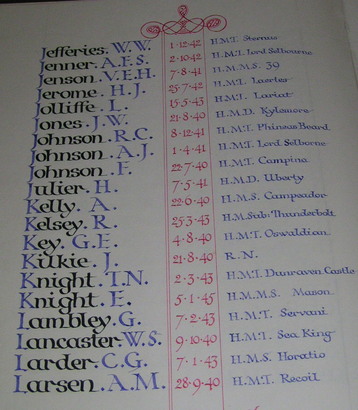 Jefferies. W.W. 1·12·42 H.M.T. Sternus
Jenner. A.F.S. 2·10·42 H.M.T. Lord Selbourne
Jenson. V.E.H. 7·8·41 H.M.M.S. 39
Jerome. H.J. 25·7·42 H.M.T. Laertes
Jolliffe. L. 15·5·43 H.M.T. Lariat
Jones. J.W. 21·8·40 H.M.D. Kylemore
Johnson. R.C. 8·12·41 H.M.T. Phineas Beard
Johnson. A.J. 1·4·41 H.M.T. Lord Selborne
Johnson. F. 22·7·40 H.M.T. Campina
Julier. H. 7·5·41 H.M.D. Uberty
Kelly. A. 22·6·40 H.M.S. Campeador
Kelsey. R. 25·3·43 H.M. Sub. Thunderbolt
Key. G.E. 4·8·40 H.M.T. Oswaldian
Kilkie. J. 21·8·40 R.N.
Knight. T.N. 2·3·43 H.M.T. Dunraven Castle
Knight. E. 5·1·45 H.M.M.S. Mason
Lambley. G. 7·2·43 H.M.T. Servani
Lancaster. W.S. 9·10·40 H.M.T. Sea King
Larder. C.G. 7·1·43 H.M.S. Horatio
Larsen. A.M. 28·9·40 H.M.T. Recoil